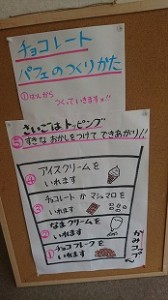 チョコレート
パフェのつくりかた
①はんから
つくっていきますよ!!
さいごは トッピング
⑤すきな おかしをつけて できあがり!!
④アイスクリームを
いれます
③チョコレート か マシュマロを
いれます
②なまクリームを
いれます
①チョコフレークを
いれます
かみコップ